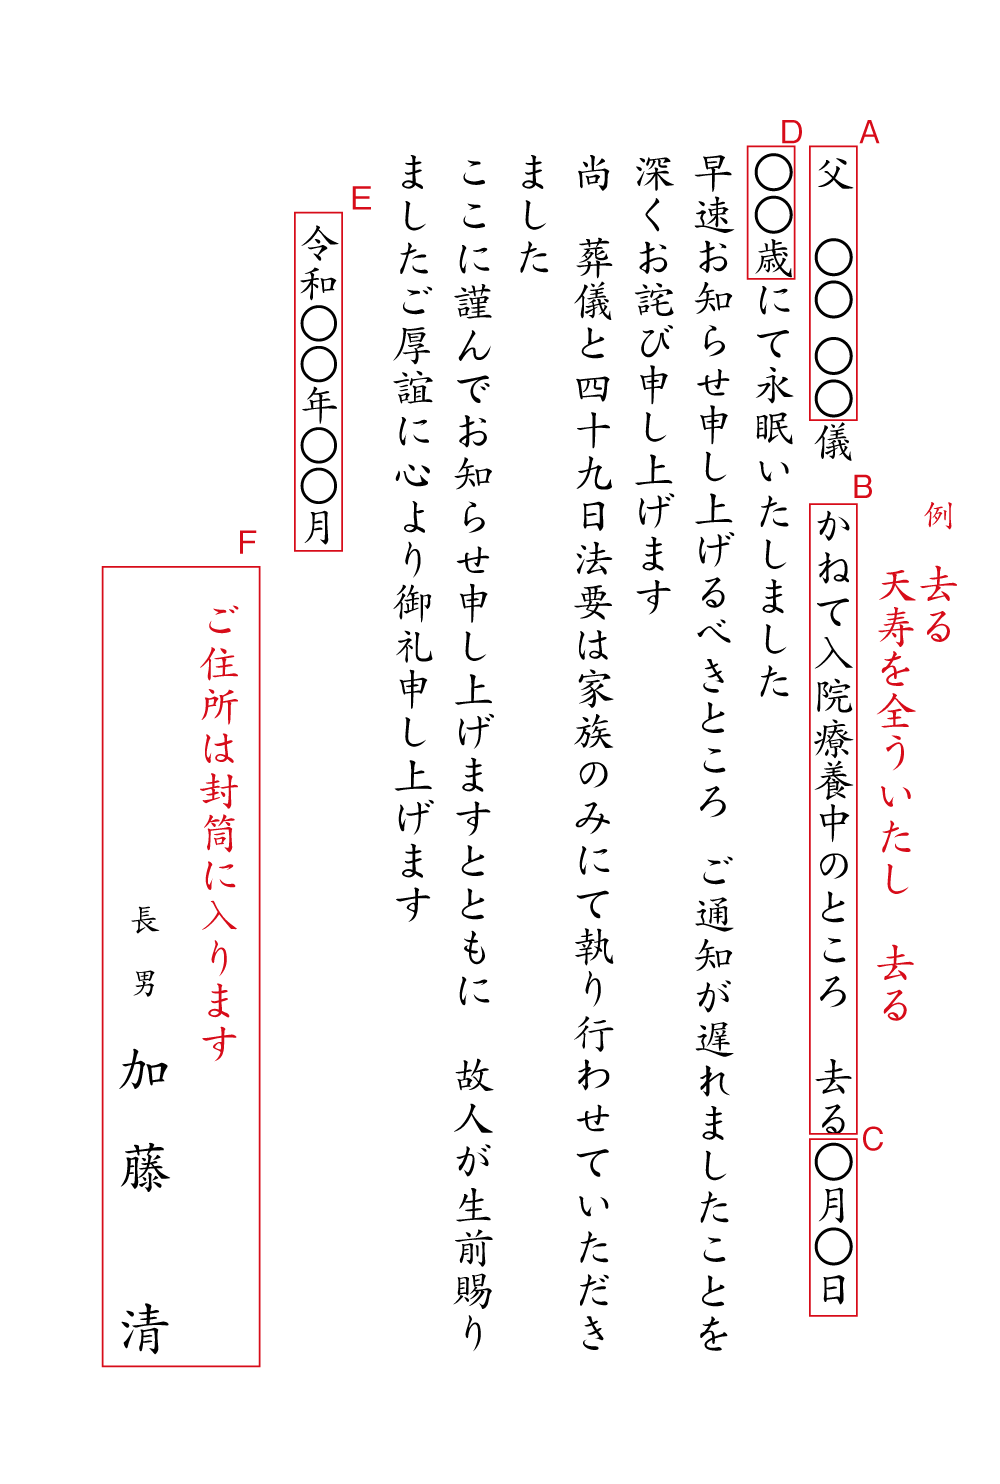 例　去る
天寿を全ういたし　去る
A
父　〇〇　〇〇儀
B
かねて入院療養中のところ　去る
C
〇月〇日
D
〇〇歳にて永眠いたしました
早速お知らせ申し上げるべきところ　ご通知が遅れましたことを
深くお詫び申し上げます
尚　葬儀と四十九日法要は家族のみにて執り行わせていただき
ました
ここに謹んでお知らせ申し上げますとともに　故人が生前賜り
ましたご厚誼に心より御礼申し上げます
E
令和〇〇年〇〇月
F
ご住所は封筒に入ります
長男　加藤　清